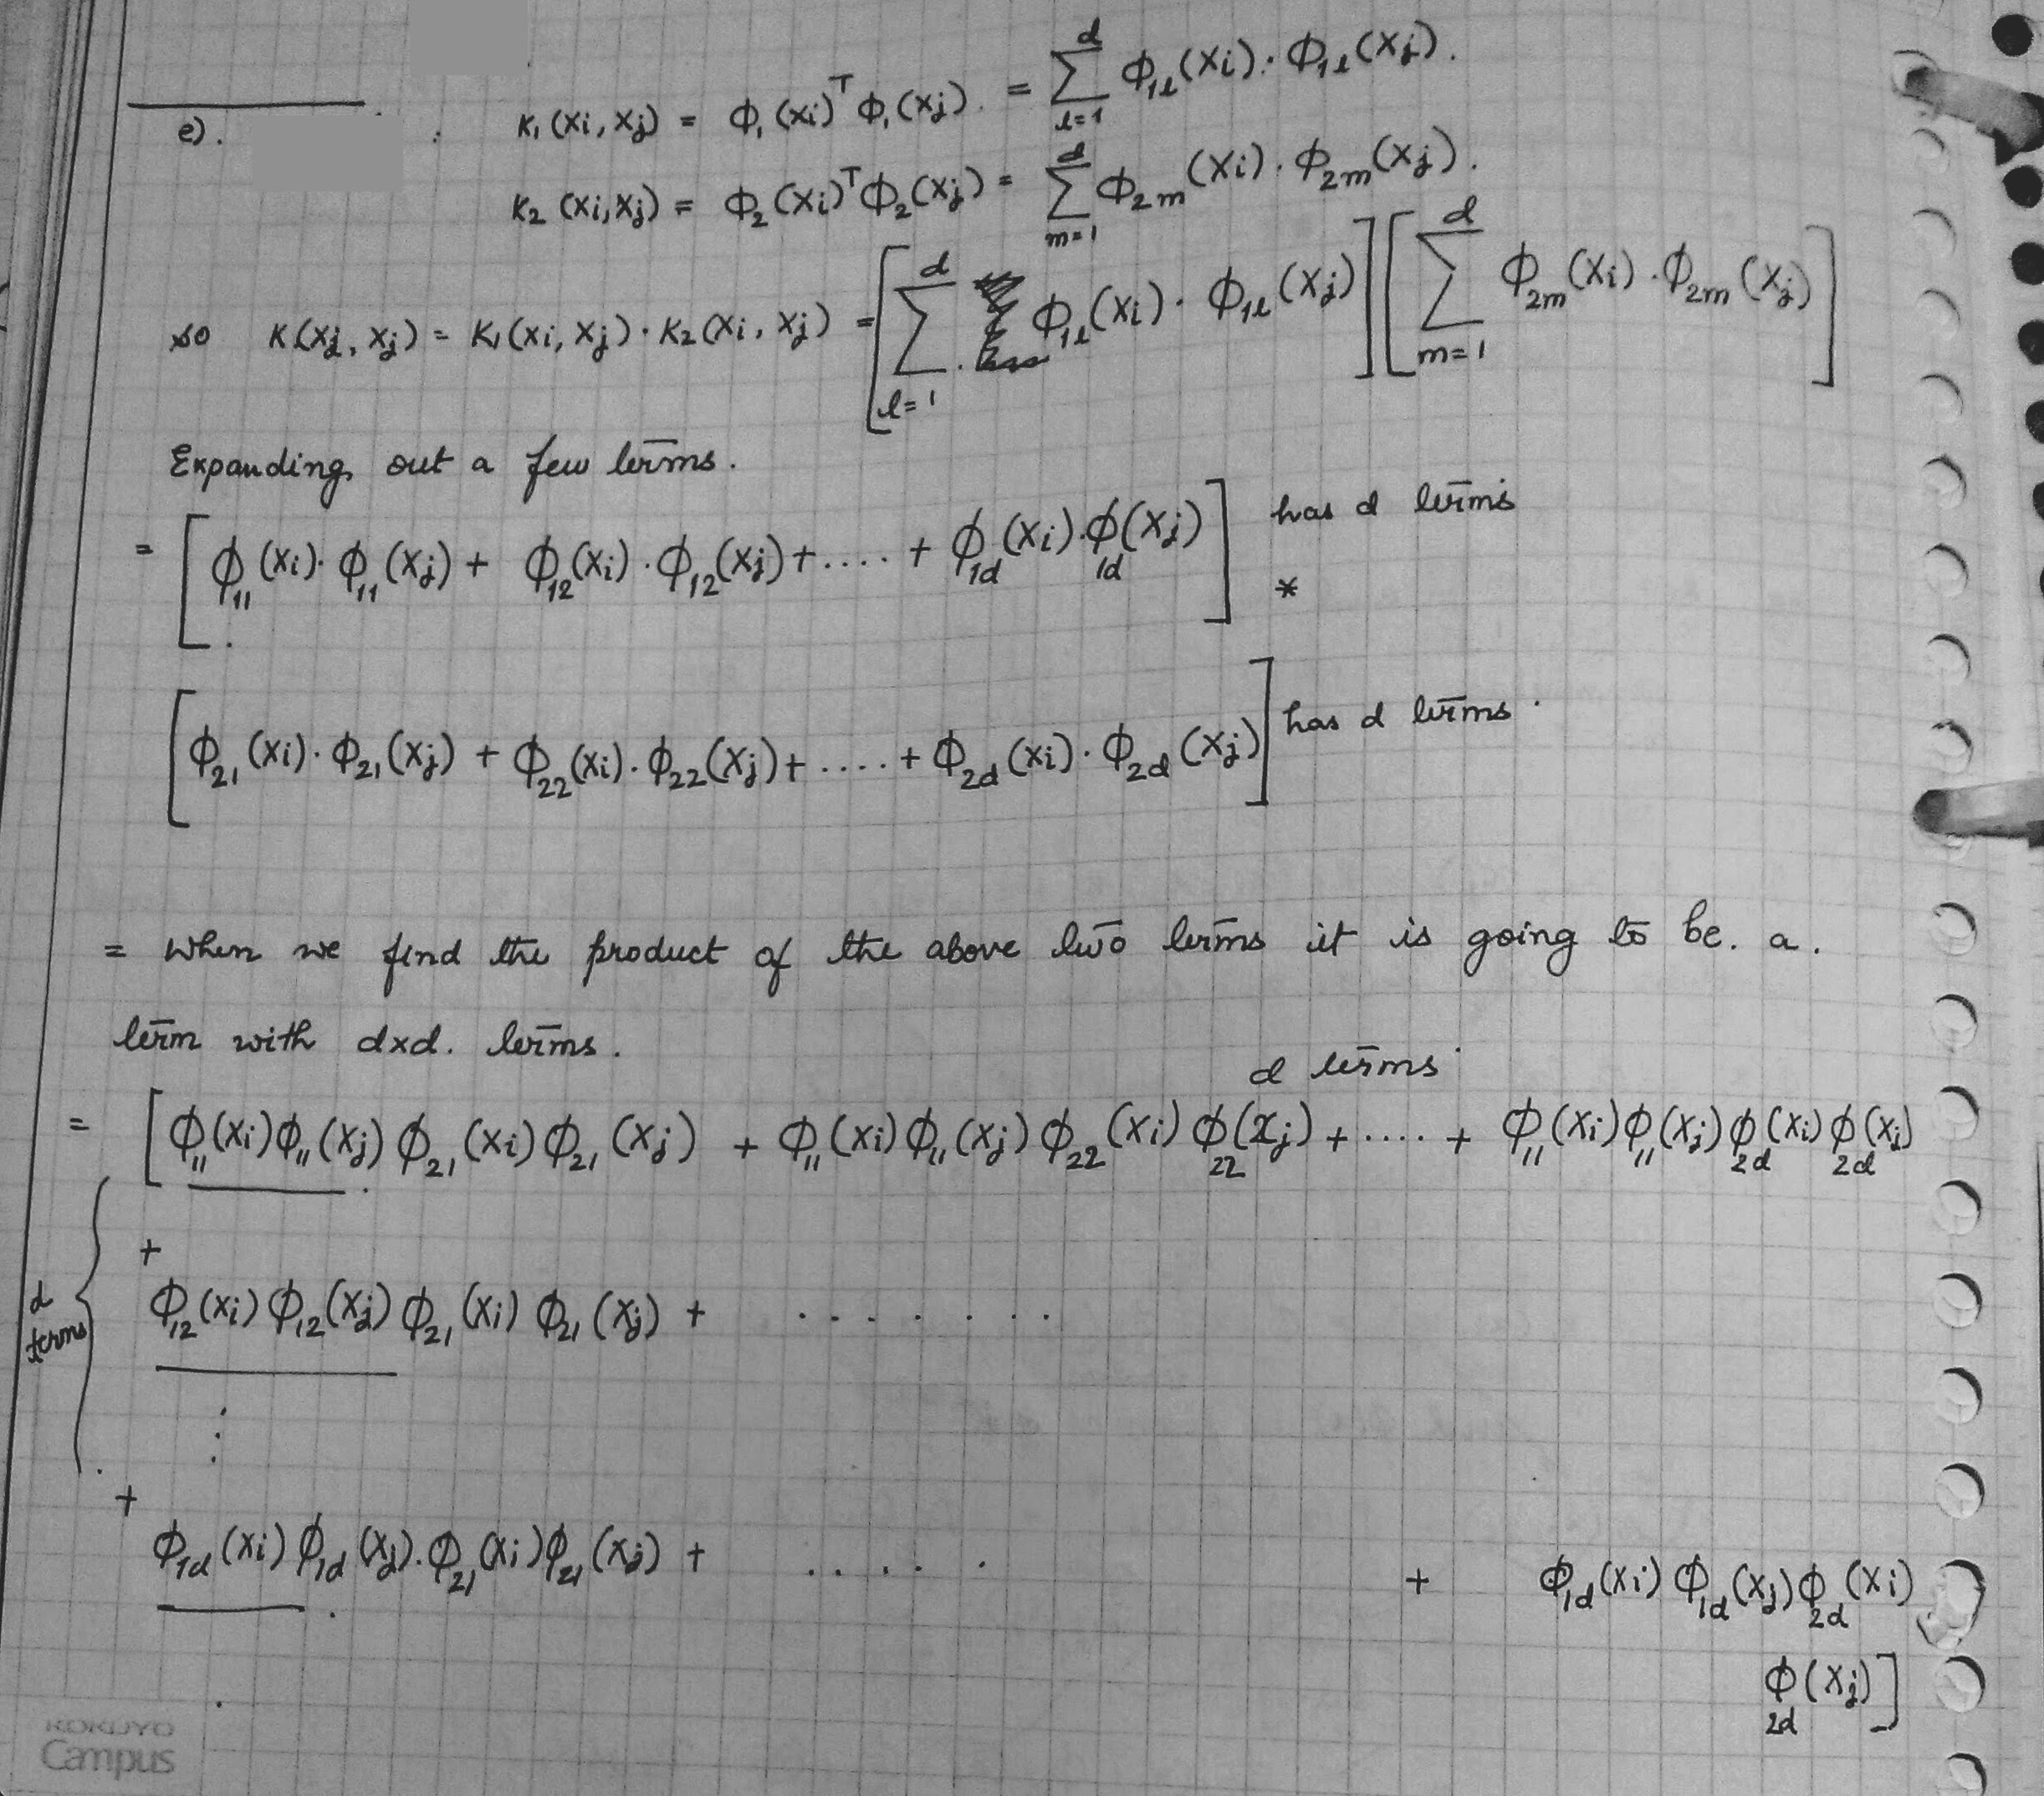 e). : K₁(xi, xj) = Φ₁(xi)ᵀΦ₁(xj). = Σ_{l=1}^{d} Φ₁ₗ(xi)·Φ₁ₗ(xj).
K₂(xi,xj) = Φ₂(xi)ᵀΦ₂(xj) = Σ_{m=1}^{d} Φ₂ₘ(xi)·Φ₂ₘ(xj).
so K(xj, xj) = K₁(xi, xj)·K₂(xi, xj) = [Σ_{l=1}^{d} Φ₁ₗ(xi)·Φ₁ₗ(xj)] [Σ_{m=1}^{d} Φ₂ₘ(xi)·Φ₂ₘ(xj)]
Expanding out a few terms.
= [Φ₁₁(xi)·Φ₁₁(xj) + Φ₁₂(xi)·Φ₁₂(xj) + .... + Φ_{1d}(xi)·Φ_{1d}(xj)] has d terms
*
[Φ₂₁(xi)·Φ₂₁(xj) + Φ₂₂(xi)·Φ₂₂(xj) + .... + Φ_{2d}(xi)·Φ_{2d}(xj)] has d terms.
= When we find the product of the above two terms it is going to be. a.
term with dxd. terms.
d terms
= [Φ₁₁(xi)Φ₁₁(xj)Φ₂₁(xi)Φ₂₁(xj) + Φ₁₁(xi)Φ₁₁(xj)Φ₂₂(xi)Φ₂₂(xj) + .... + Φ₁₁(xi)Φ₁₁(xj)Φ_{2d}(xi)Φ_{2d}(xj)
+
d terms Φ₁₂(xi)Φ₁₂(xj)Φ₂₁(xi)Φ₂₁(xj) + ........
⋮
+
Φ_{1d}(xi)Φ_{1d}(xj).Φ₂₁(xi)Φ₂₁(xj) + ..... + Φ_{1d}(xi)Φ_{1d}(xj)Φ_{2d}(xi)
Φ_{2d}(xj)]
KOKUYO
Campus